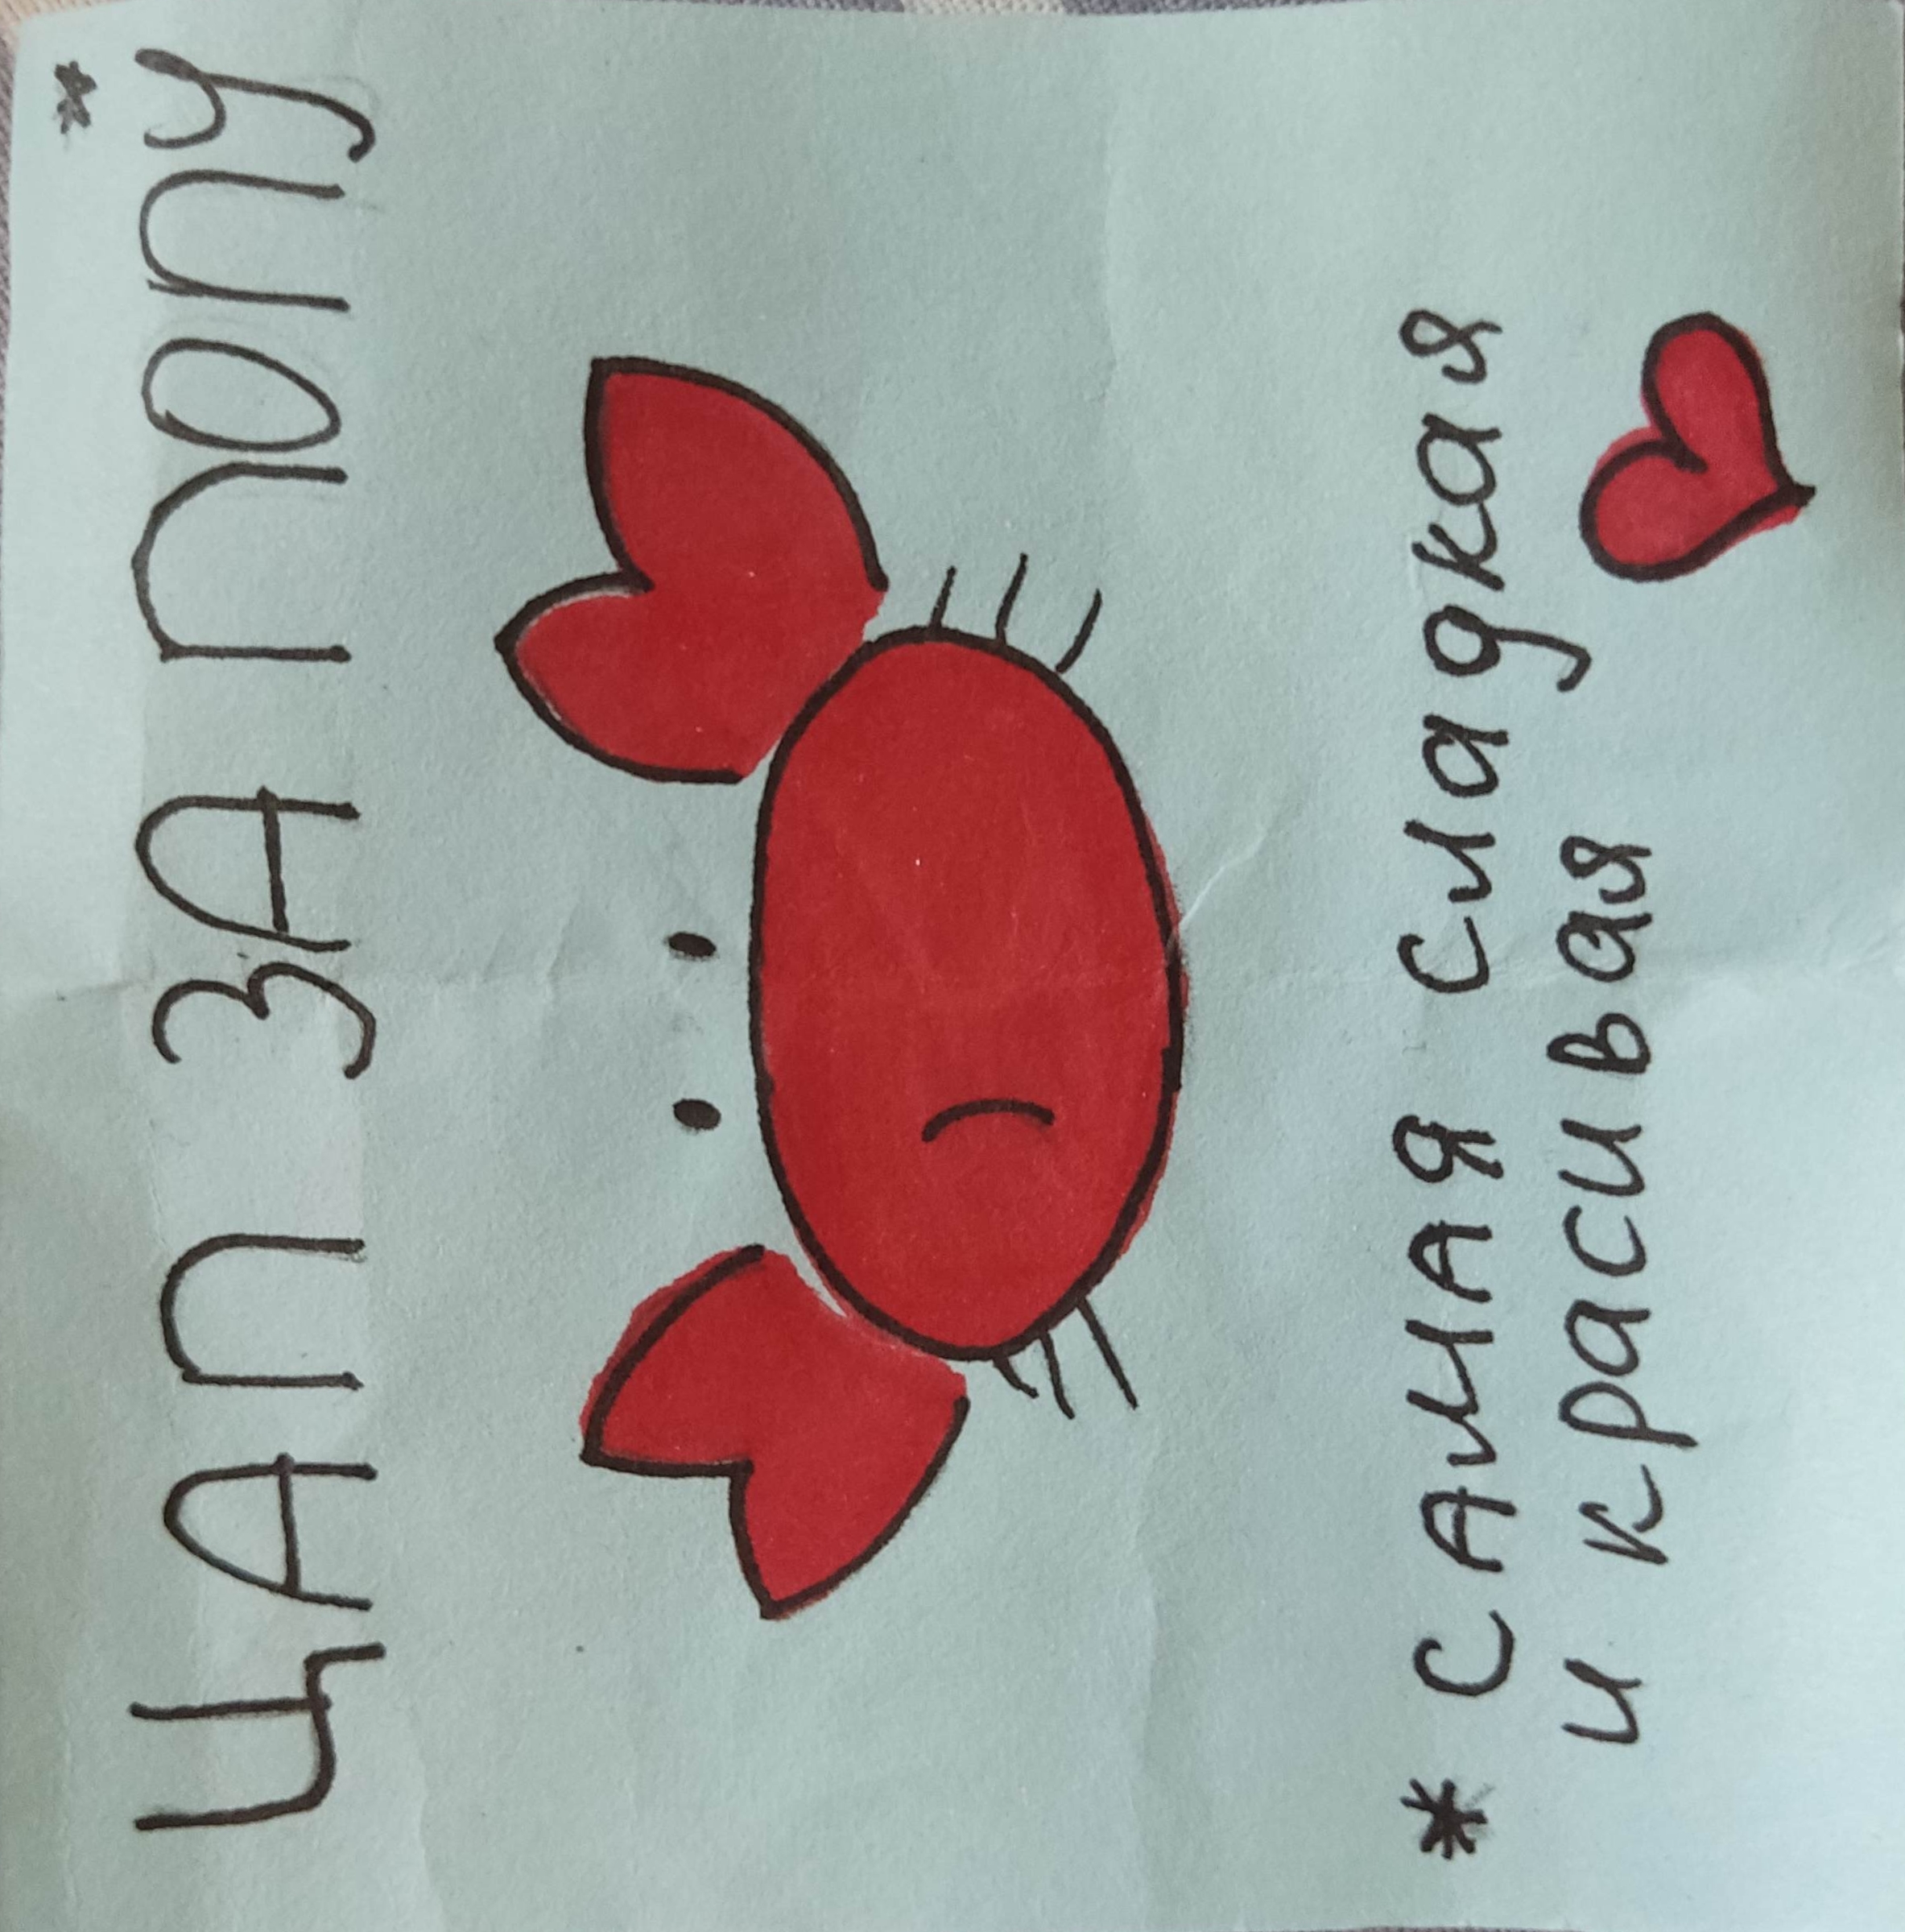 ЦАП ЗА ПОПУ*
* САМАЯ СЛАДКАЯ
и красивая